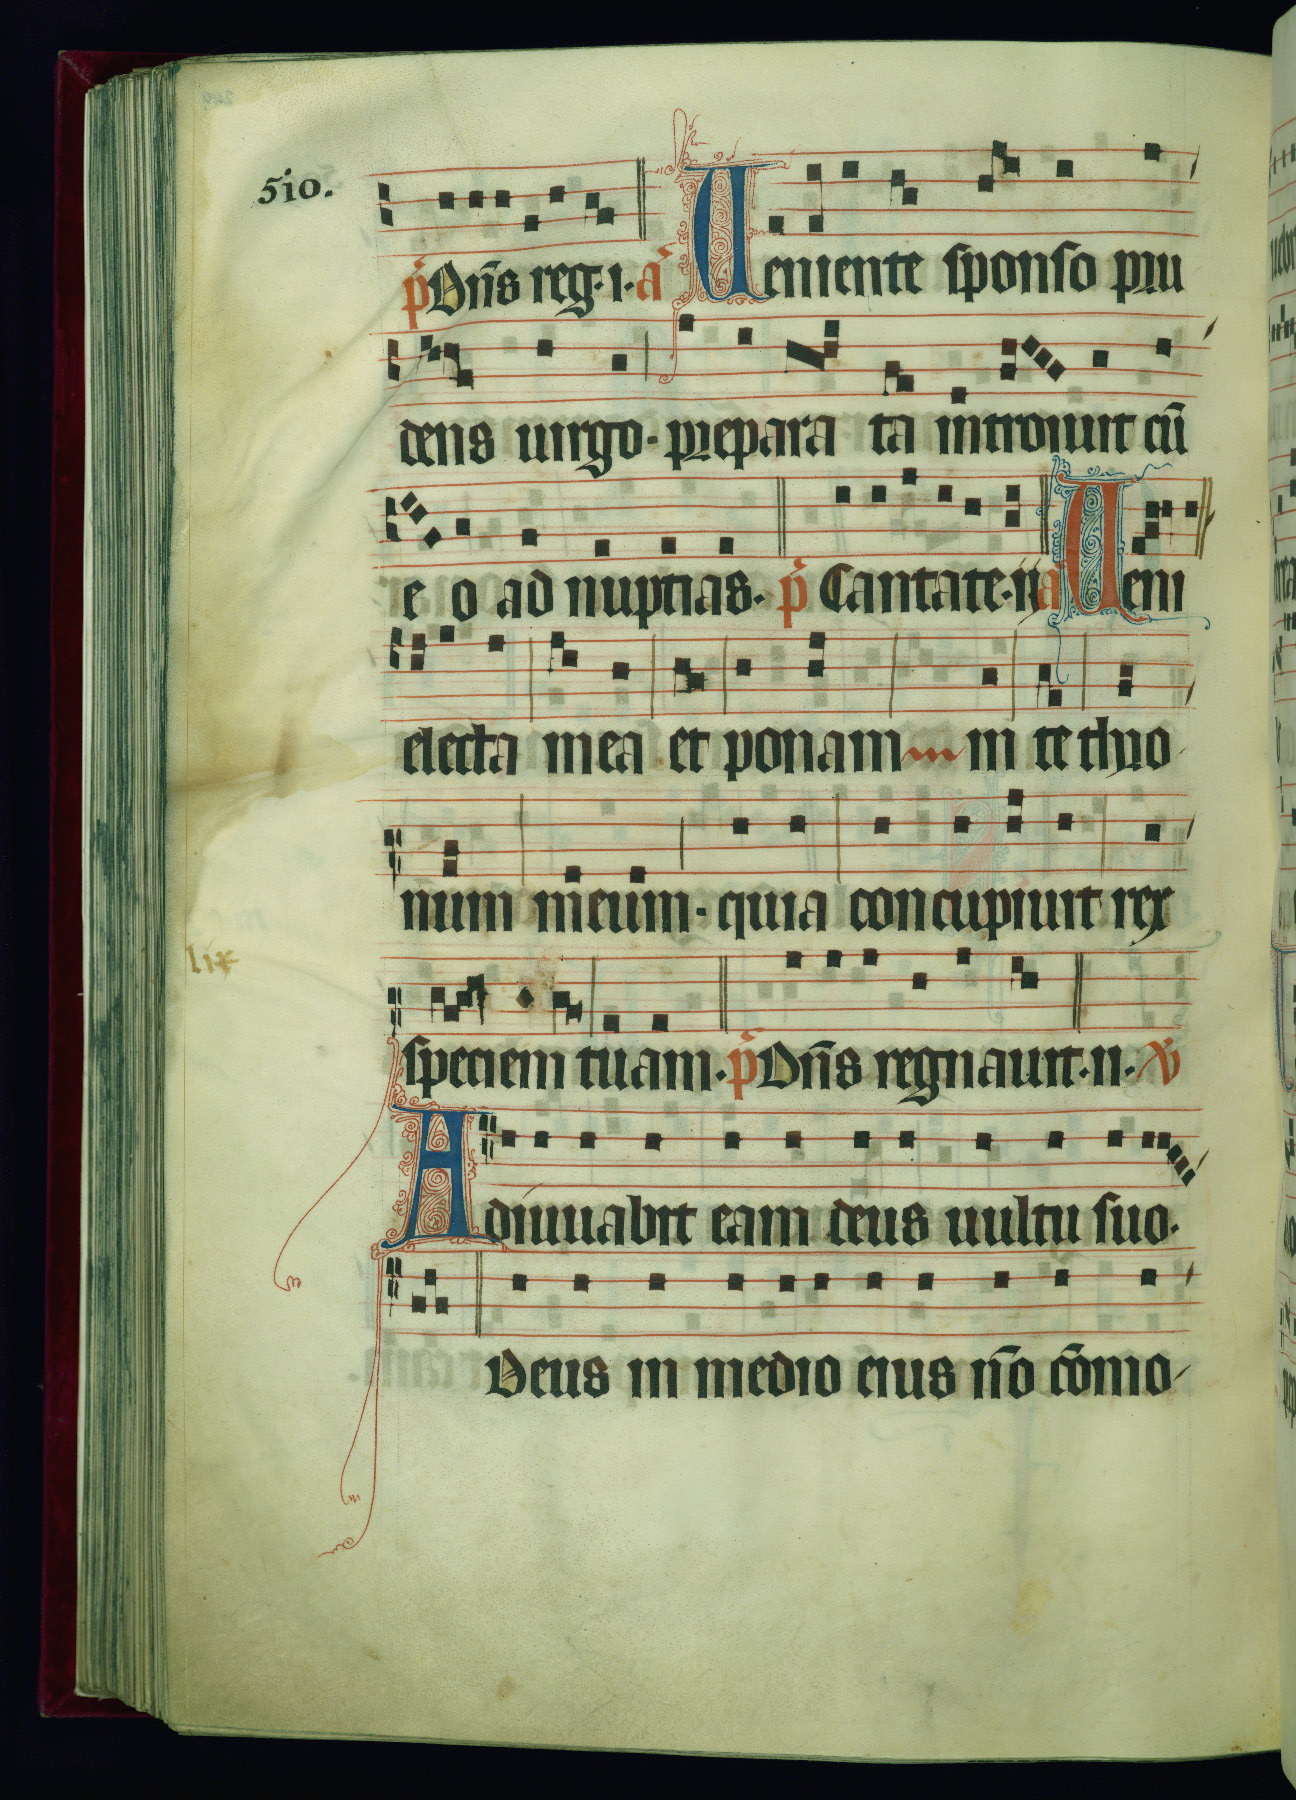 510.
p̄ Dn̄s reg. i. a Ueniente sponso pru
dens uirgo. prepara ta introiuit cū
e o ad nuptias. p̄ Cantate. ii a Ueni
electa mea et ponam in te thro
num meum. quia concupiuit rex
speciem tuam. p̄ Dn̄s regnauit. ii.
Adiuuabit eam deus uultu suo.
Deus in medio eius nō cōmo